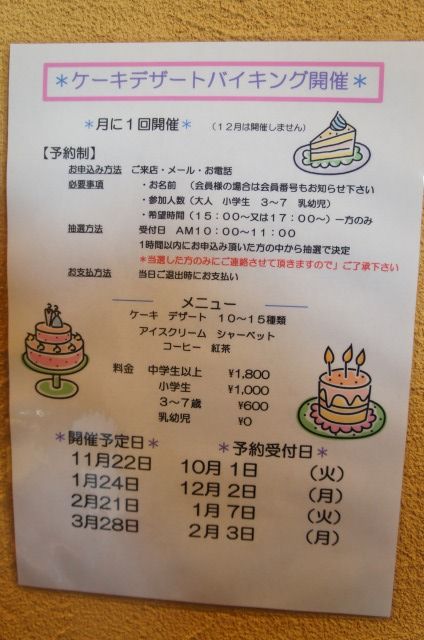 *ケーキデザートバイキング開催*
*月に1回開催* (12月は開催しません)
【予約制】
お申込み方法 ご来店・メール・お電話
必要事項 ・お名前 (会員様の場合は会員番号もお知らせ下さい
・参加人数(大人 小学生 3~7 乳幼児)
・希望時間(15:00~又は17:00~)一方のみ
抽選方法 受付日 AM10:00~11:00
1時間以内にお申込み頂いた方の中から抽選で決定
*当選した方のみにご連絡させて頂きますので」ご了承下さい
お支払方法 当日ご退出時にお支払い
メニュー
ケーキ デザート 10~15種類
アイスクリーム シャーベット
コーヒー 紅茶
料金 中学生以上 ¥1,800
小学生 ¥1,000
3~7歳 ¥600
乳幼児 ¥0
*開催予定日* *予約受付日*
11月22日 10月1日 (火)
1月24日 12月2日 (月)
2月21日 1月7日 (火)
3月28日 2月3日 (月)